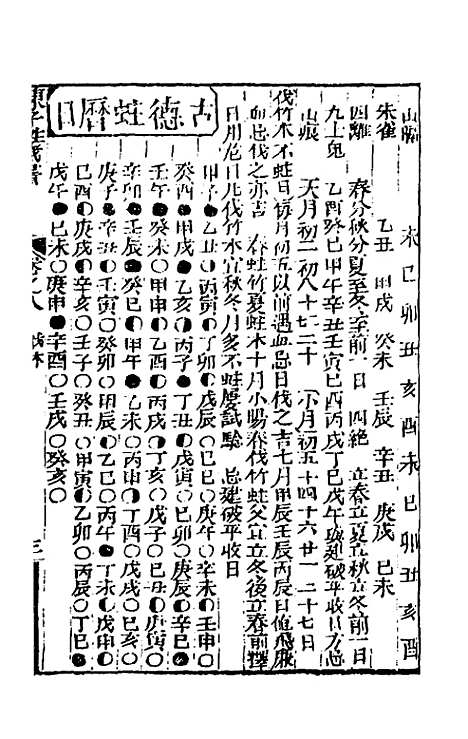 山隔　未巳卯丑亥酉未巳卯丑亥酉
朱雀　乙丑　甲戌　癸未　壬辰　辛丑　庚戌　己未
四離　春分秋分夏至冬至前一日　四絕　立春立夏立秋立冬前一日
九土鬼　乙酉癸巳甲午辛丑壬寅己酉丙戌丁巳戊午與建破平收日方忌
山痕　大月初二初八十七二十　小月初五十四十六廿一二十七日
伐竹木不蛀日每月初五以前遇血忌日伐之吉七月甲辰壬辰丙辰日值飛廉
血忌伐之亦吉　春蛀竹夏蛀木十月小陽春伐竹蛀冬宜立冬後立春前擇
日用危日凡伐竹木宜秋冬月多不蛀屢試驗　忌建破平收日
古德蛀曆日
甲子●乙丑◐丙寅◐丁卯●戊辰○己巳○庚午○辛未◐壬申○
癸酉●甲戌●乙亥◐丙子●丁丑●戊寅○己卯●庚辰◐辛巳●
壬午●癸未○甲申◐乙酉○丙戌◐丁亥○戊子○己丑○庚寅○
辛卯●壬辰●癸巳●甲午●乙未○丙申◐丁酉○戊戌○己亥○
庚子●辛丑◐壬寅○癸卯○甲辰○乙巳○丙午●丁未◐戊申●
己酉○庚戌◐辛亥○壬子○癸丑○甲寅◐乙卯○丙辰○丁巳●
戊午●己未○庚申●辛酉○壬戌○癸亥○
卷之八
三